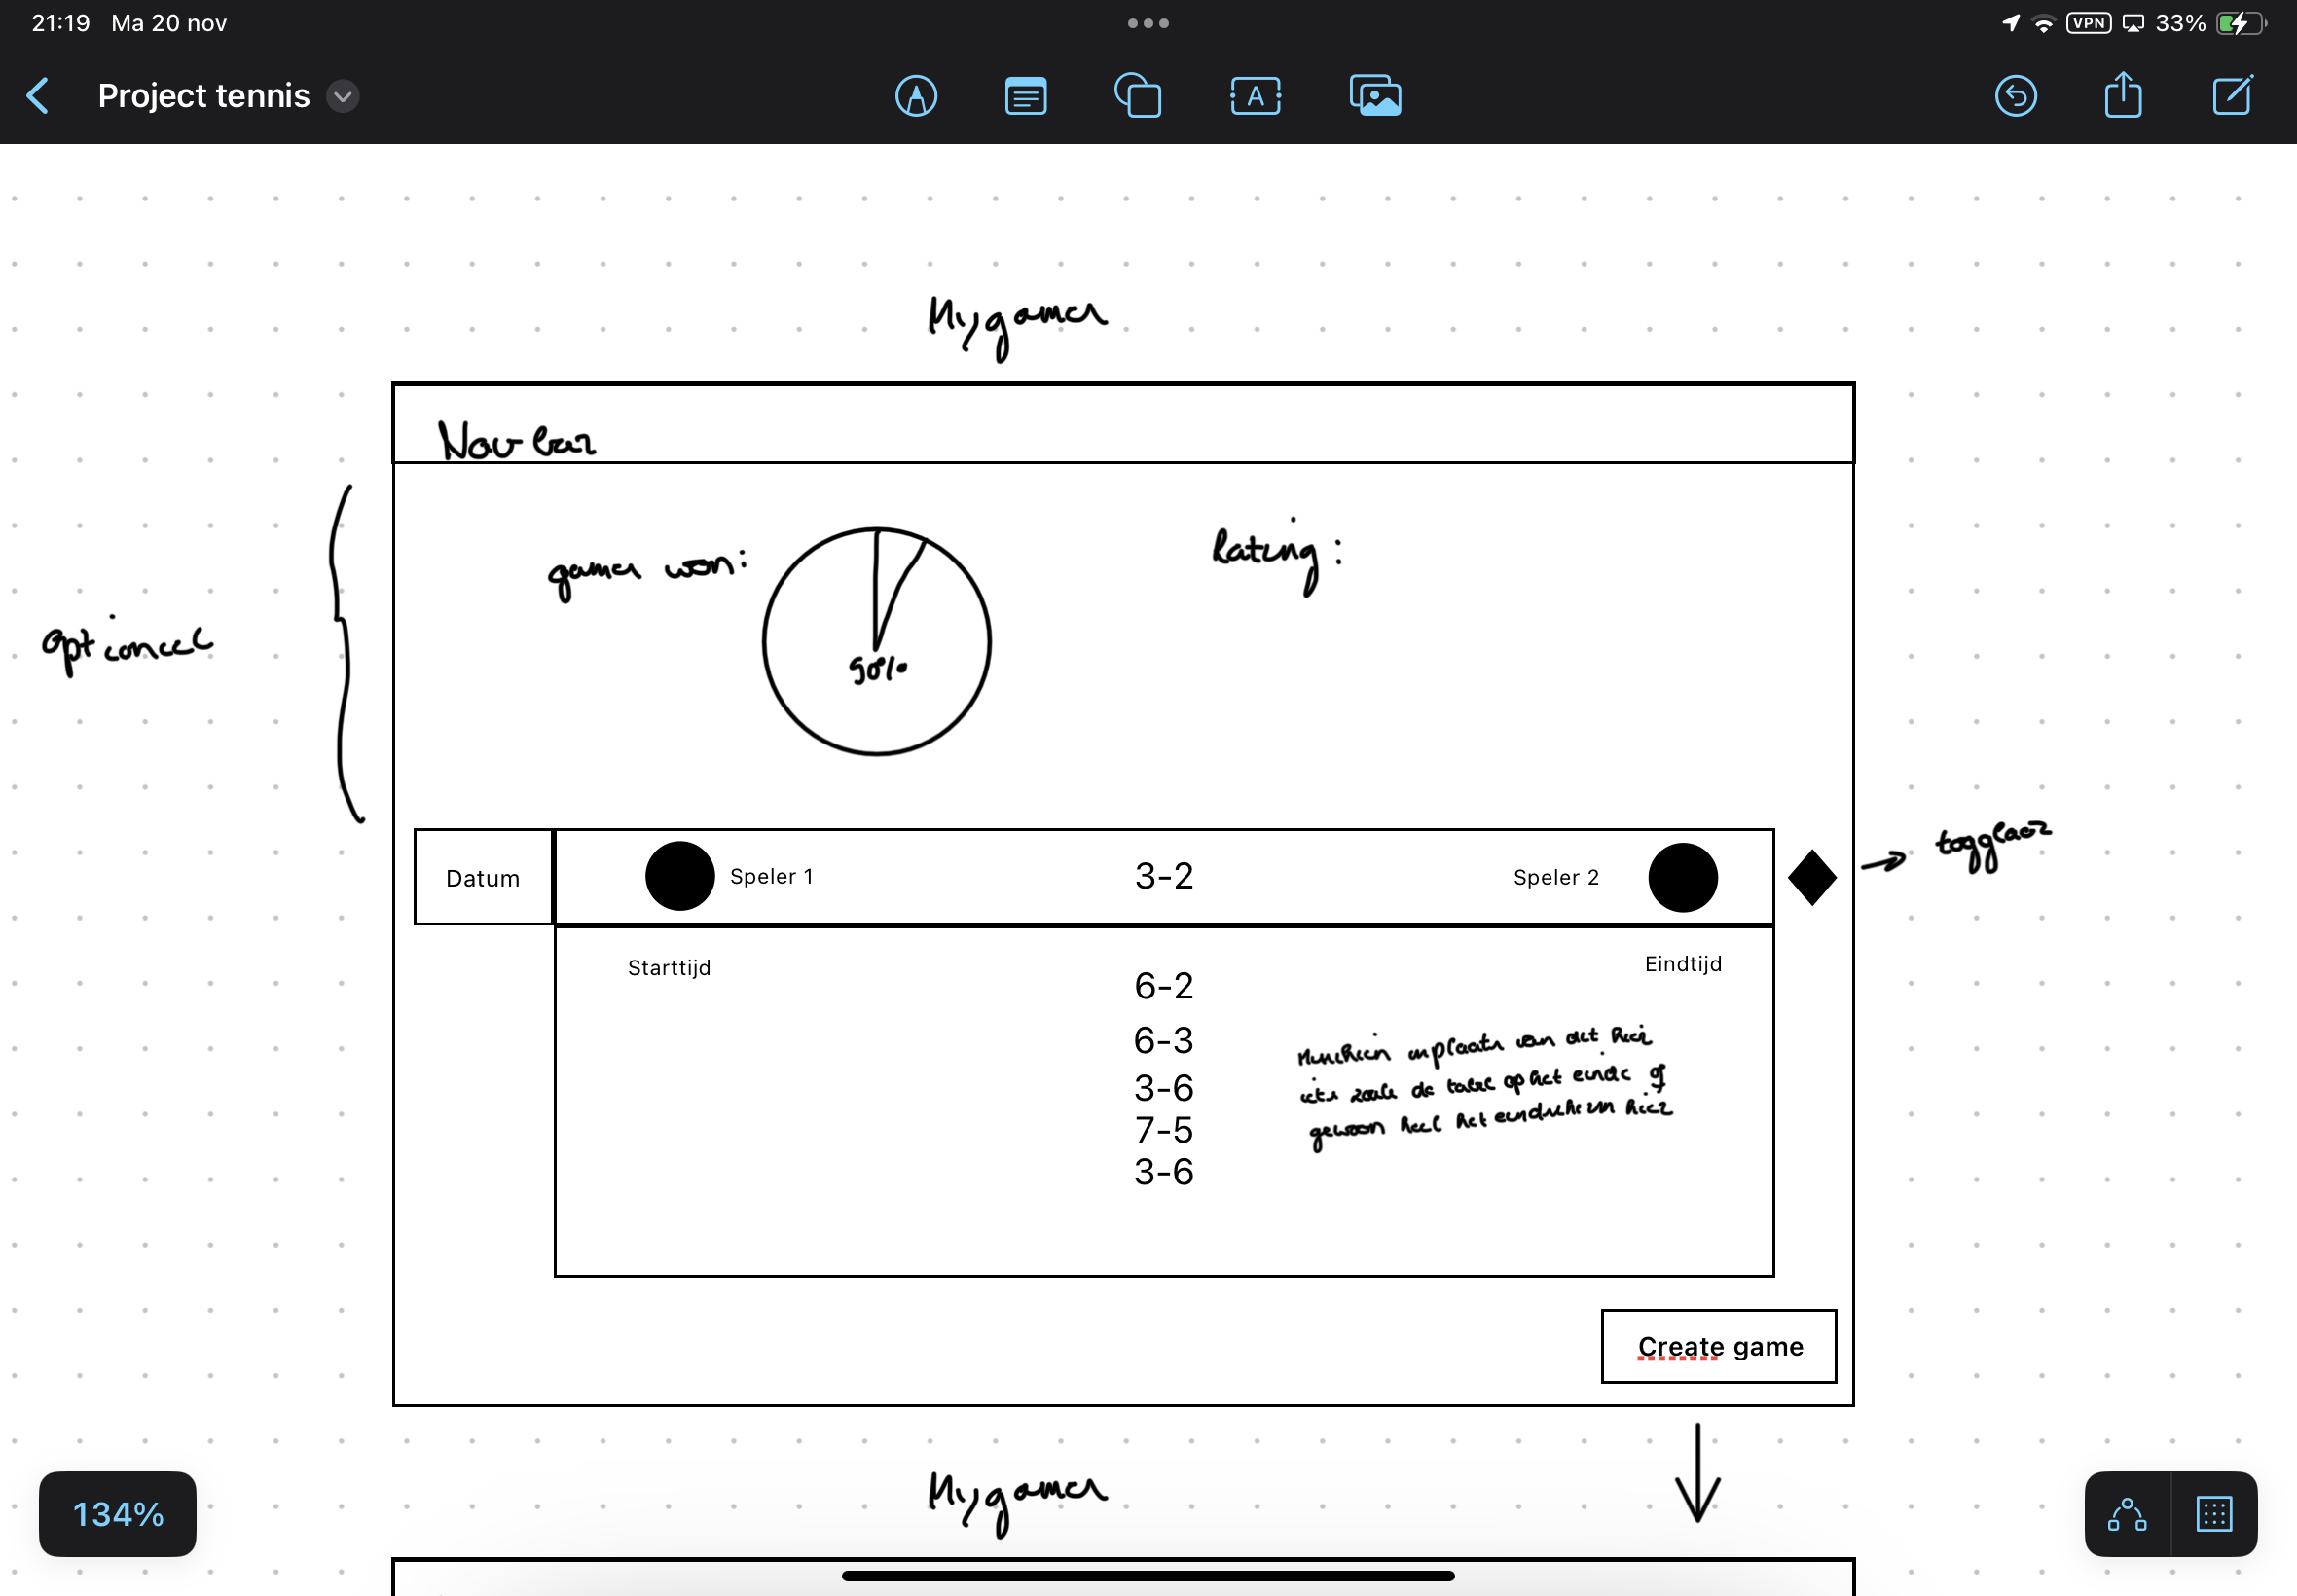 21:19 Ma 20 nov
VPN 33%
Project tennis
A
My games
Nav bar
games won:
Rating:
optioneel
90%
togglebaar
Datum
Speler 1
3-2
Speler 2
Starttijd
Eindtijd
6-2
6-3
3-6
7-5
3-6
Misschien inplaats van dit hier
iets zoals de tabel op het einde of
gewoon heel het eindscherm hier
Create game
My games
134%